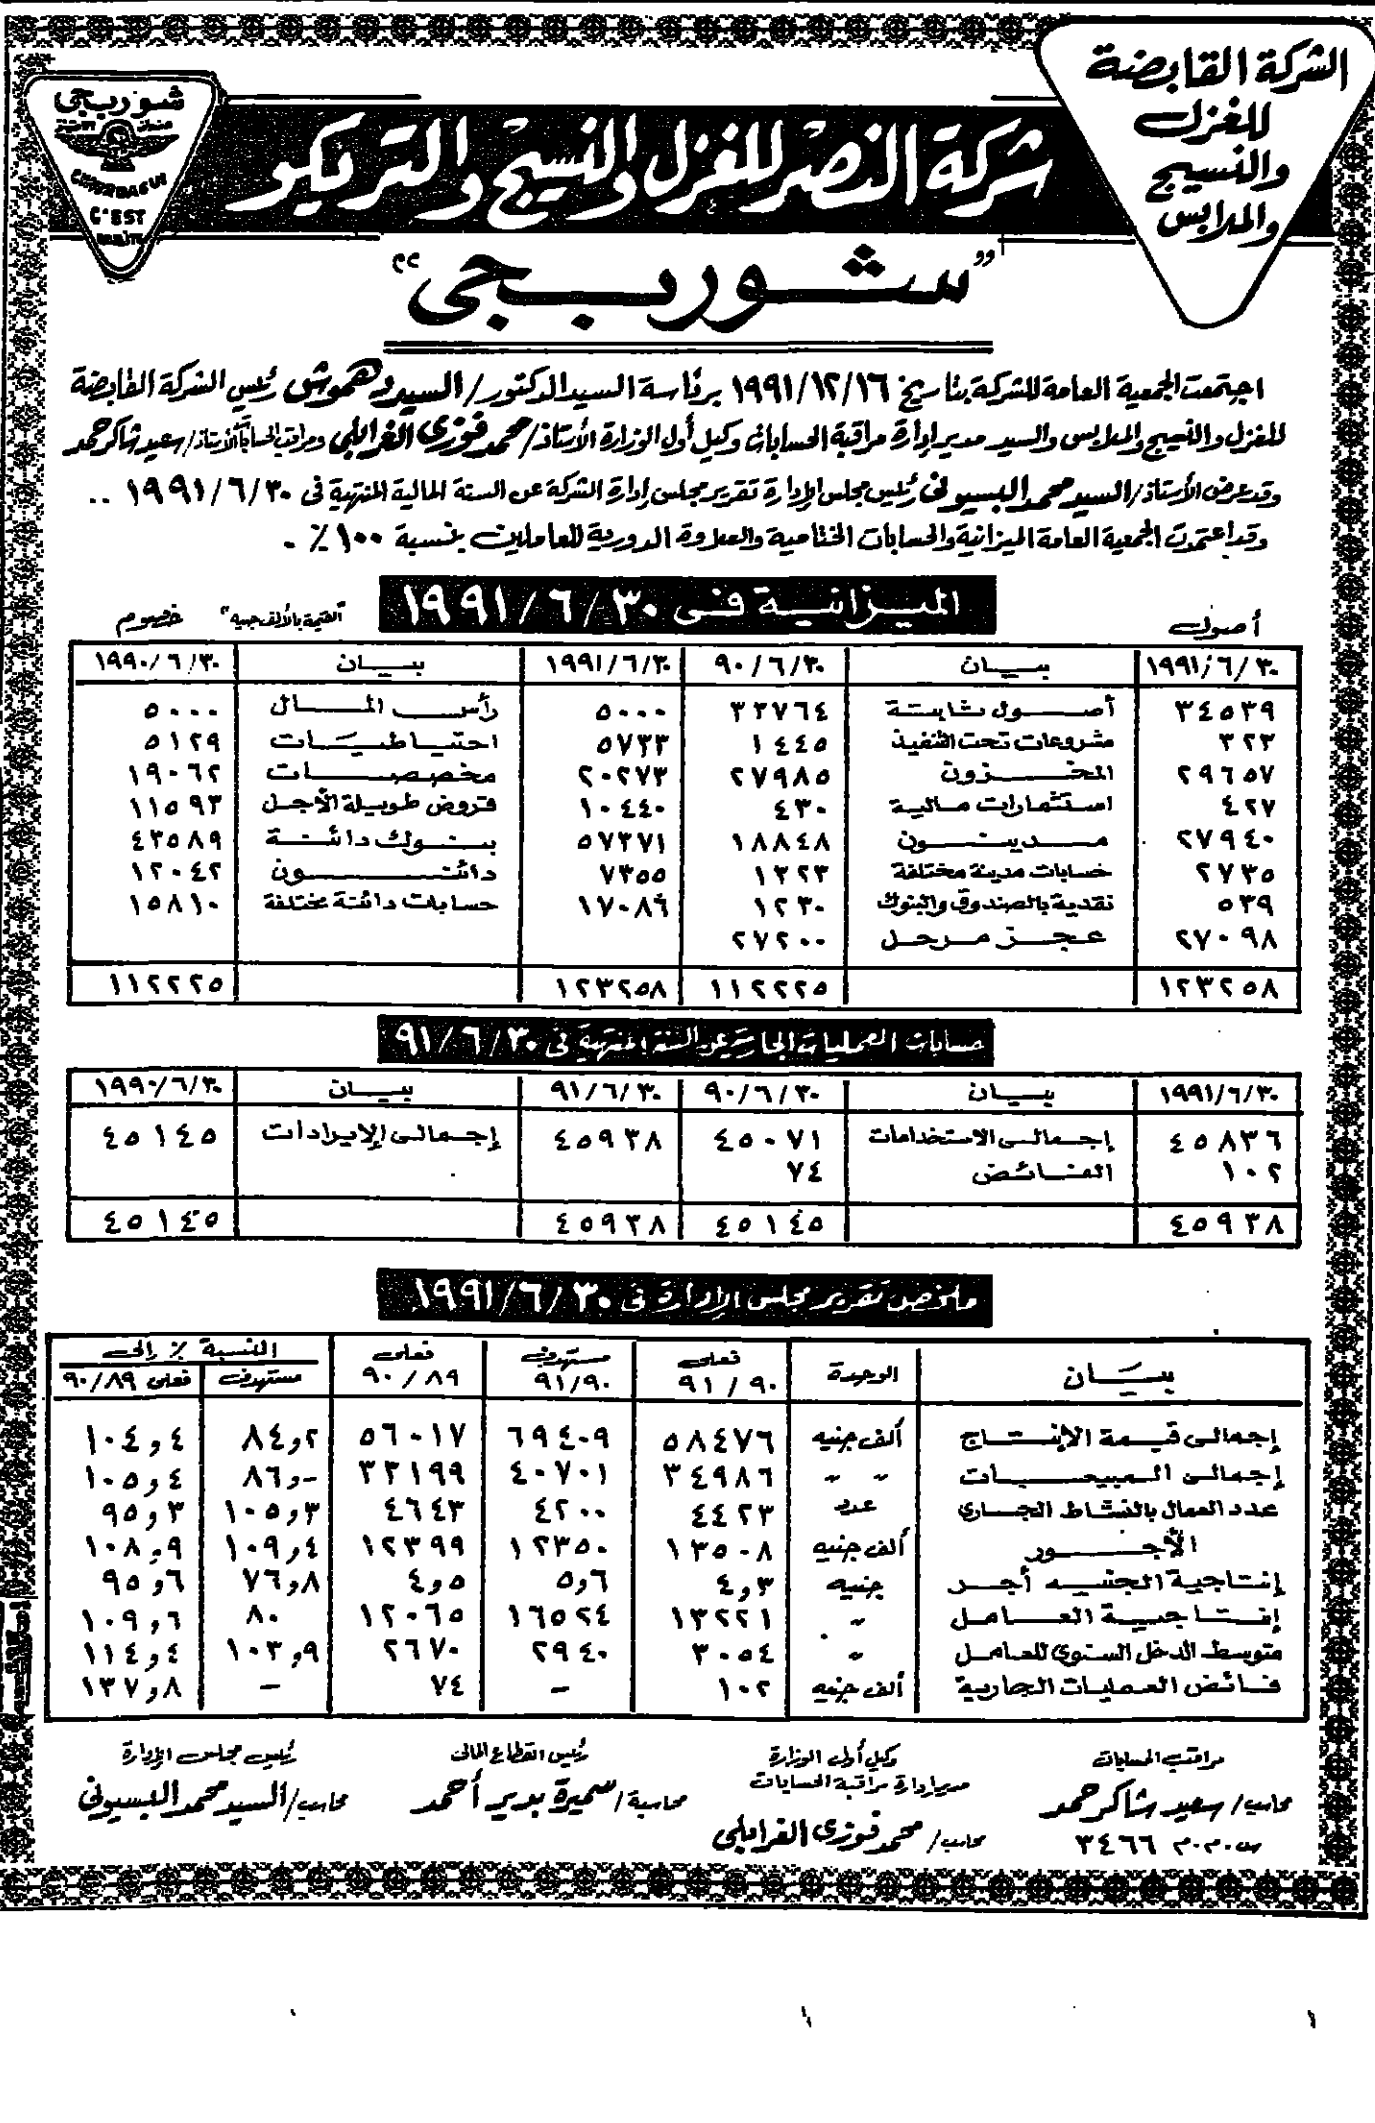 الشركة القابضة
للغزل
والنسيج
والملابس
شوربجى
CHOURBAGUI
C'EST
شركة النصر للغزل والنسيج والتريكو
"شوربجى"
اجتمعت الجمعية العامة للشركة بتاريخ ١٩٩١/١٢/١٦ برئاسة السيد الدكتور/ السيد دهموش رئيس الشركة القابضة
للغزل والنسيج والملابس والسيد مدير إدارة مراقبة الحسابات وكيل أول الوزارة الأستاذ/ محمد فوزى الغرابلى ومراقب الحسابات الأستاذ/ سعيد شاكر حمد
وقد عرض الأستاذ/ السيد محمد البسيونى رئيس مجلس الإدارة تقرير مجلس إدارة الشركة عن السنة المالية المنتهية فى ١٩٩١/٦/٣٠ ..
وقد اعتمدت الجمعية العامة الميزانية والحسابات الختامية والعلاوة الدورية للعاملين بنسبة ١٠٠٪ .
الميزانية فى ١٩٩١/٦/٣٠
أصول "القيمة بالألف جنيه" خصوم
١٩٩١/٦/٣٠ بيان ٩٠/٦/٣٠ ١٩٩١/٦/٣٠ بيان ١٩٩٠/٦/٣٠
٣٤٥٣٩ أصول ثابتة ٣٣٧٦٤ ٥٠٠٠ رأس المال ٥٠٠٠
٣٢٣ مشروعات تحت التنفيذ ١٤٤٥ ٥٧٣٣ احتياطيات ٥١٢٩
٢٩٦٥٧ المخزون ٢٧٩٨٥ ٢٠٢٧٣ مخصصات ١٩٠٦٢
٤٢٧ استثمارات مالية ٤٣٠ ١٠٤٤٠ قروض طويلة الأجل ١١٥٩٣
٢٧٩٤٠ مدينون ١٨٨٤٨ ٥٧٣٧١ بنوك دائنة ٤٣٥٨٩
٢٧٣٥ حسابات مدينة مختلفة ١٣٢٣ ٧٣٥٥ دائنون ١٢٠٤٢
٥٣٩ نقدية بالصندوق والبنوك ١٢٣٠ ١٧٠٨٦ حسابات دائنة مختلفة ١٥٨١٠
٢٧٠٩٨ عجز مرحل ٢٧٢٠٠
١٢٣٢٥٨ ١١٢٢٢٥ ١٢٣٢٥٨ ١١٢٢٢٥
حسابات العمليات الجارية عن السنة المنتهية فى ٩١/٦/٣٠
١٩٩١/٦/٣٠ بيان ٩٠/٦/٣٠ ٩١/٦/٣٠ بيان ١٩٩٠/٦/٣٠
٤٥٨٣٦ إجمالى الاستخدامات ٤٥٠٧١ ٤٥٩٣٨ إجمالى الإيرادات ٤٥١٤٥
١٠٢ الفائض ٧٤
٤٥٩٣٨ ٤٥١٤٥ ٤٥٩٣٨ ٤٥١٤٥
ملخص تقرير مجلس الإدارة فى ١٩٩١/٦/٣٠
بيان الوحدة فعلى ٩١/٩٠ مستهدف ٩١/٩٠ فعلى ٩٠/٨٩ النسبة ٪ إلى
مستهدف فعلى ٩٠/٨٩
إجمالى قيمة الإنتاج ألف جنيه ٥٨٤٧٦ ٦٩٤٠٩ ٥٦٠١٧ ٨٤,٢ ١٠٤,٤
إجمالى المبيعات " " ٣٤٩٨٦ ٤٠٧٠١ ٣٣١٩٩ ٨٦,- ١٠٥,٤
عدد العمال بالنشاط الجارى عدد ٤٤٢٣ ٤٢٠٠ ٤٦٤٣ ١٠٥,٣ ٩٥,٣
الأجور ألف جنيه ١٣٥٠٨ ١٢٣٥٠ ١٢٣٩٩ ١٠٩,٤ ١٠٨,٩
إنتاجية الجنيه أجر جنيه ٤,٣ ٥,٦ ٤,٥ ٧٦,٨ ٩٥,٦
إنتاجية العامل " ١٣٢٢١ ١٦٥٢٤ ١٢٠٦٥ ٨٠ ١٠٩,٦
متوسط الدخل السنوى للعامل " ٣٠٥٤ ٢٩٤٠ ٢٦٧٠ ١٠٣,٩ ١١٤,٤
فائض العمليات الجارية ألف جنيه ١٠٢ - ٧٤ - ١٣٧,٨
مراقب الحسابات
محاسب/ سعيد شاكر حمد
س.م.م ٣٤٦٦
وكيل أول الوزارة
مدير إدارة مراقبة الحسابات
محاسب/ محمد فوزى الغرابلى
رئيس القطاع المالى
محاسبة/ سميرة بدير أحمد
رئيس مجلس الإدارة
محاسب/ السيد محمد البسيونى